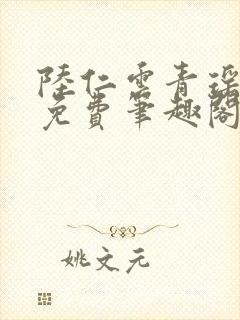 陸仁雲青瑶
免費筆趣閣
姚文元